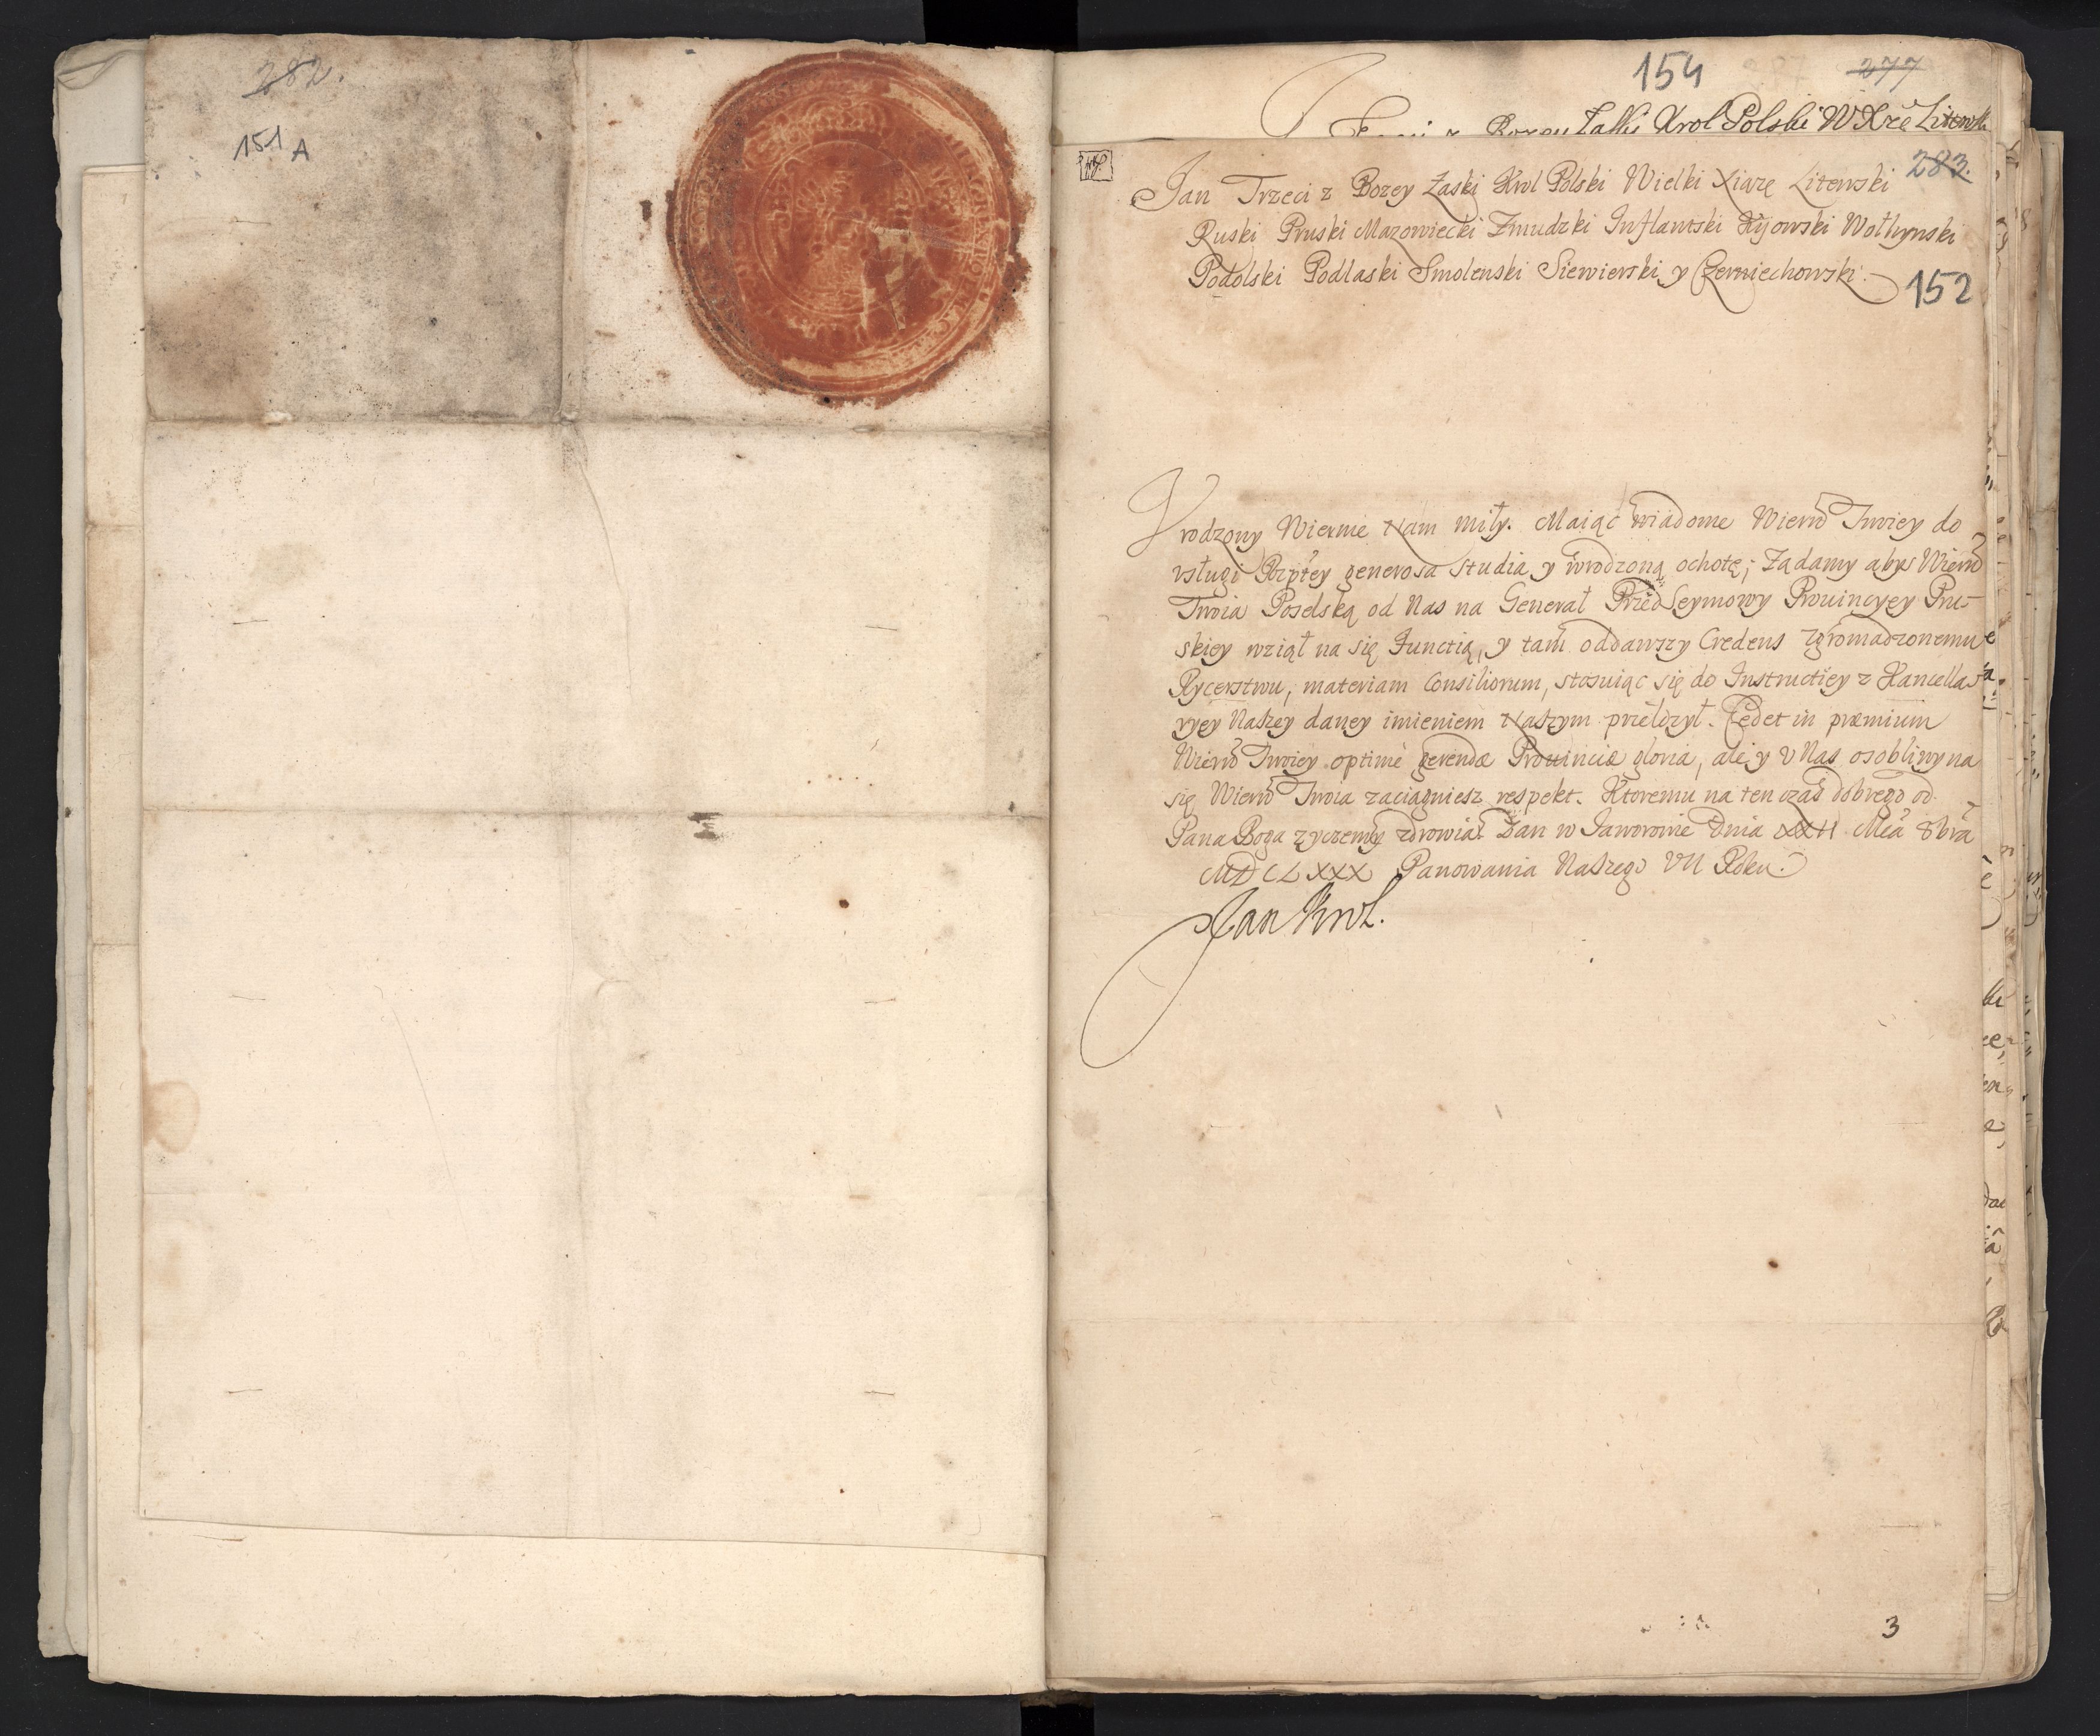 282.
151 A
154
277
Krol Polski W Xże Litewsk
283.
Jan Trzeci z Bozey Łaski Krol Polski Wielki Xiąrzę Litewski
Ruski Pruski Mazowiecki Zmudzki Inflantski Kijowski Wołhynski
Podolski Podlaski Smolenski Siewierski y Czerniechowski.
152
Vrodzony Wiernie Nam miły. Maiąc wiadome Wiern Twiey do
vsługi Rzptey generosa studia y wrodzoną ochotę; Ządamy abyś Wiern
Twoia Poselską od Nas na Generał Przed Seymowy Prouincyey Pru-
skiey wziął na się Functią, y tam oddawszy Credens zgromadzonemu
Rycerstwu, materiam Consiliorum, stosuiąc się do Instructiey z Kancella-
ryey Naszey daney imieniem Naszym przełozył. Cedet in præmium
Wiern Twoiey optimè gerendæ Prouinciæ gloria, ale y v Nas osobliwy na
się Wiern Twoia zaciągniesz respekt. Ktoremu na ten czas dobrego od
Pana Boga zyczemy zdrowia. Dan w Jaworowie Dnia XXII Mca 8bra
MDCLXXX Panowania Naszego VII Roku.
Jan Krol.
3